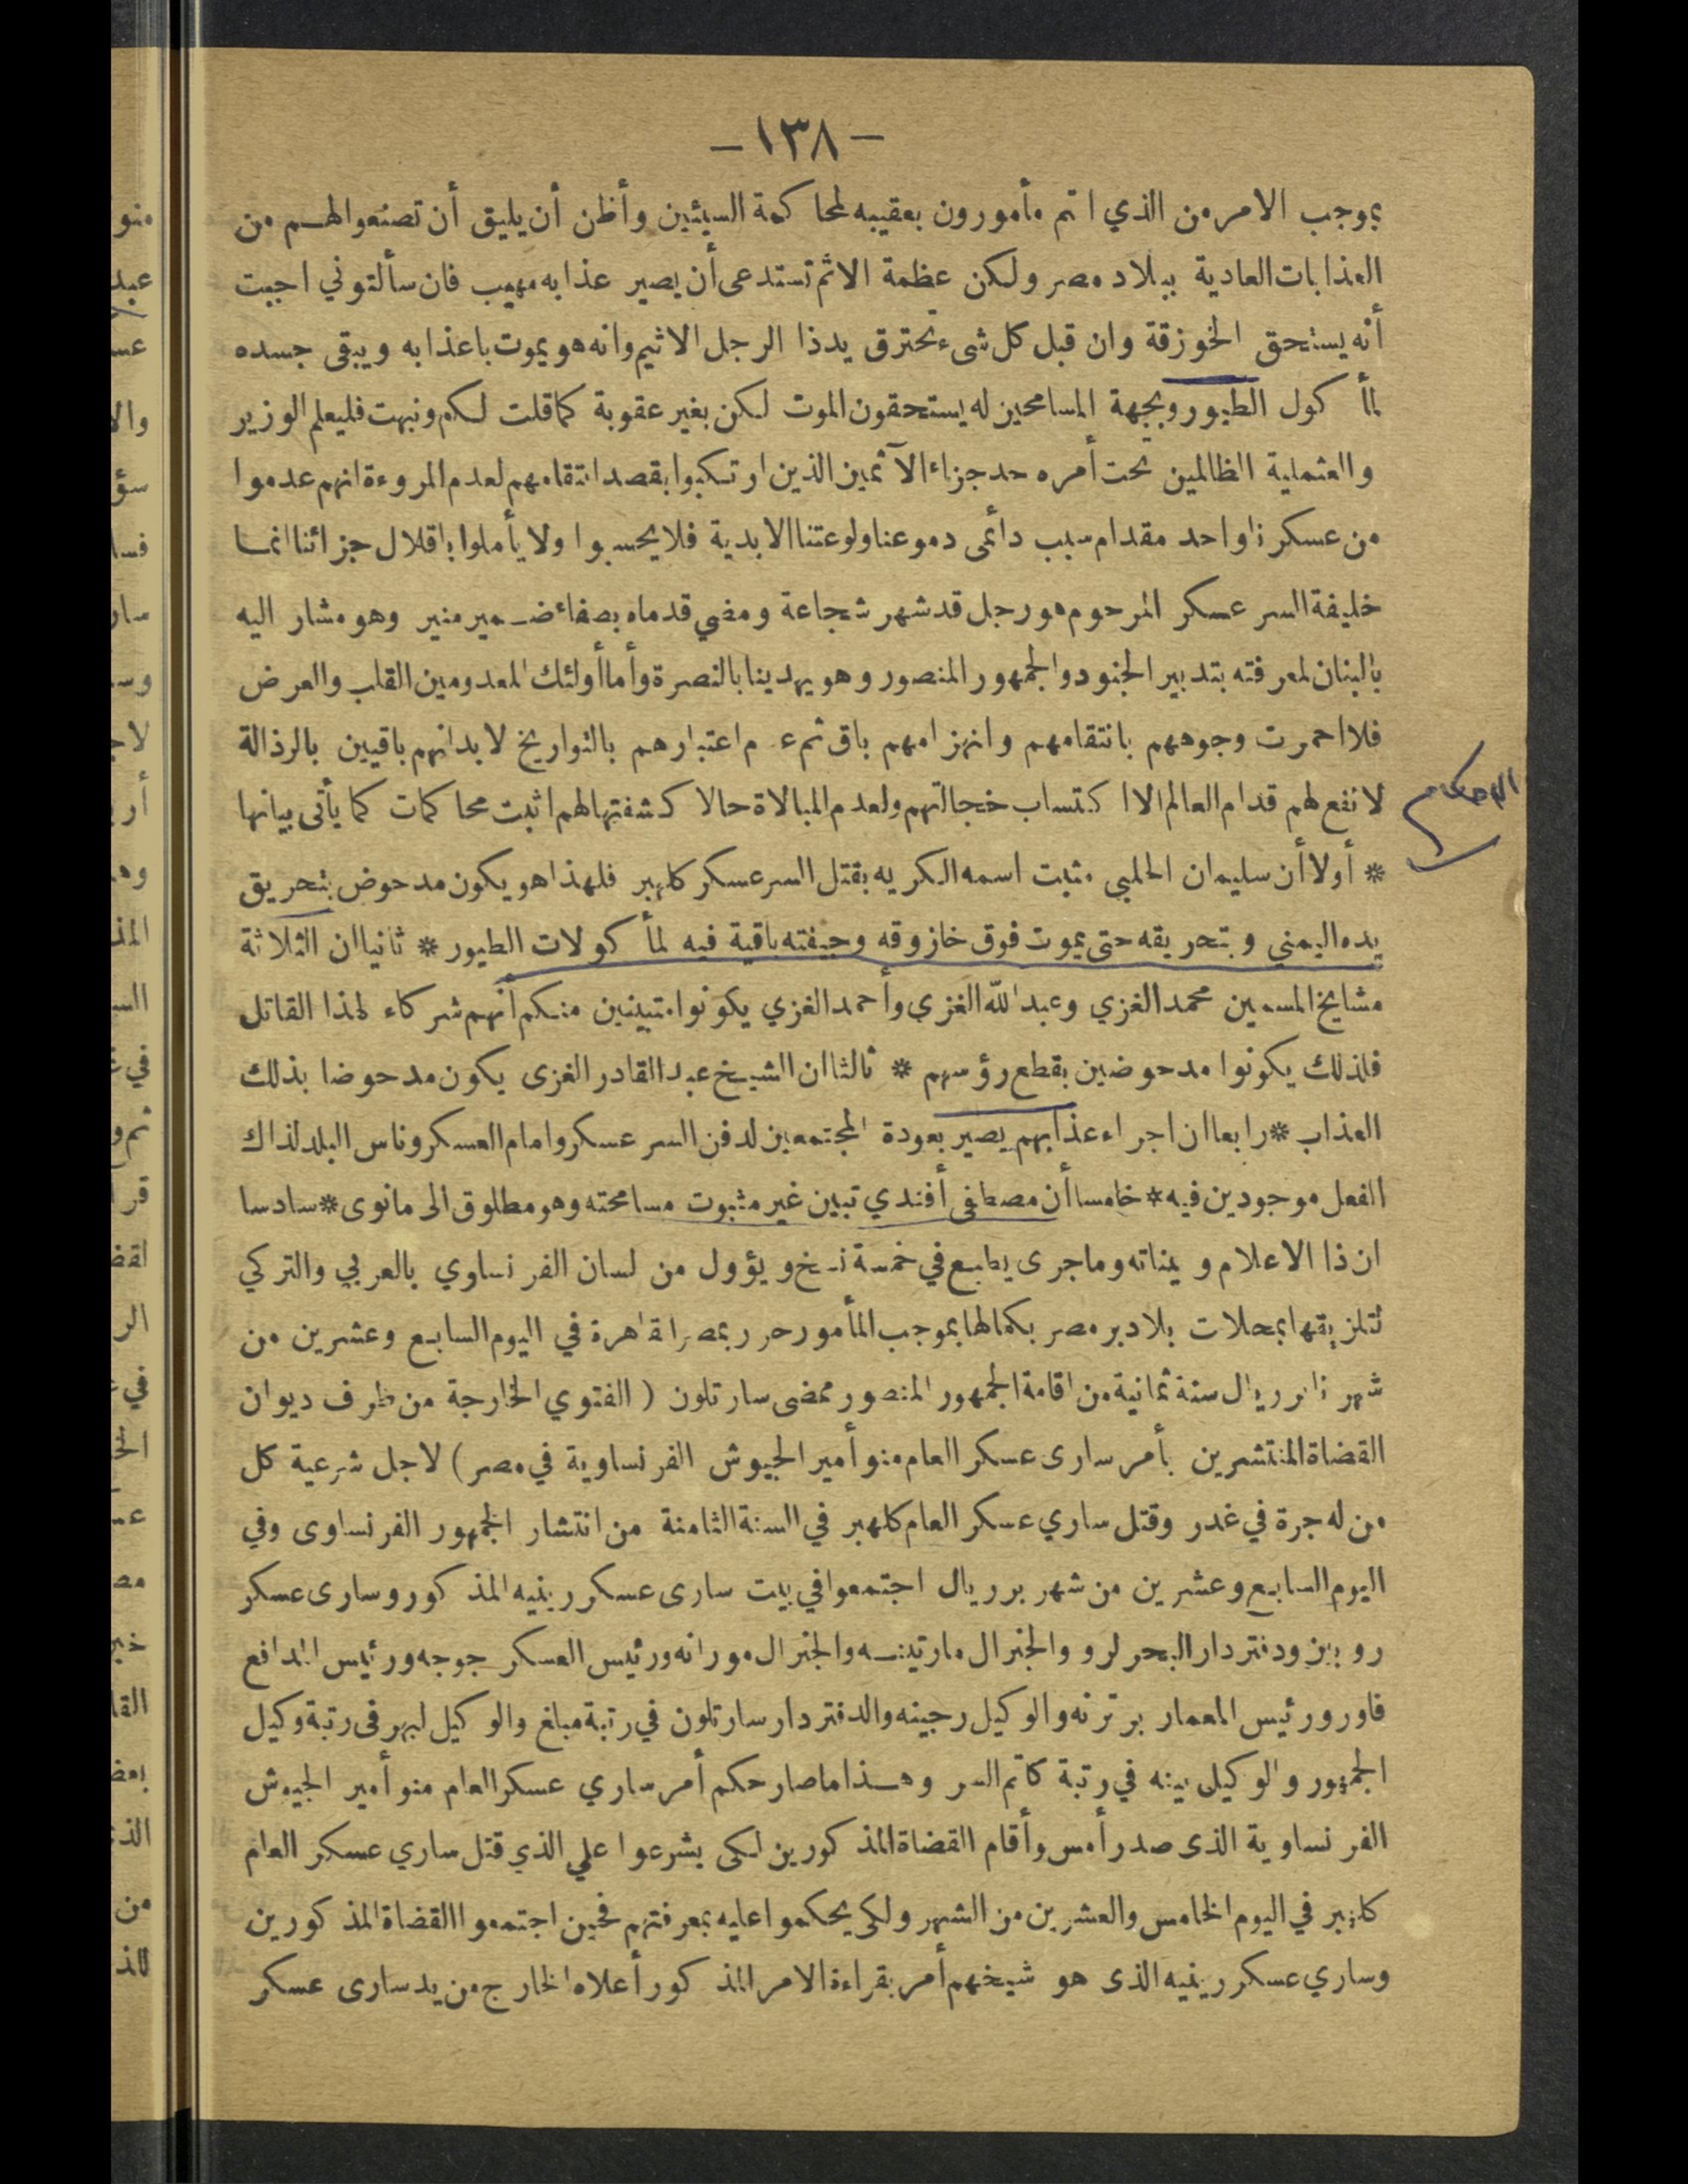 — ١٣٨ —
بموجب الامر من الذي انتم مأمورون بعقيبه لمحاكمة السيئين وأظن أن يليق أن تصنعوا لهم من
العذابات العادية ببلاد مصر ولكن عظمة الاثم تستدعى أن يصير عذابه مهيب فان سألتوني اجبت
أنه يستحق الخوزقة وان قبل كل شىء تحترق يد ذا الرجل الاثيم وانه هو يموت باعذابه ويبقى جسده
لمأ كول الطيور وبجهة المسامحين له يستحقون الموت لكن بغير عقوبة كما قلت لكم ونبهت فليعلم الوزير
والعثملية الظالمين تحت أمره حد جزاء الآثمين الذين ارتكبوا بقصد انتقامهم لعدم المروءة انهم عدموا
من عسكرنا واحد مقدام سبب دائمى دموعنا ولوعتنا الابدية فلا يحسبوا ولا يأملوا باقلال جزائنا انما
خليفة السر عسكر المرحوم هو رجل قد شهر شجاعة ومضي قدماه بصفاء ضمير منير وهو مشار اليه
بالبنان لمعرفته بتدبير الجنود والجمهور المنصور وهو يهدينا بالنصرة وأما أولئك المعدومين القلب والعرض
فلا احمرت وجوههم بانتقامهم وانهزامهم باق ثم عدم اعتبارهم بالتواريخ لابد انهم باقيين بالرذالة
لا نفع لهم قدام العالم الا اكتساب خجالتهم ولعدم المبالاة حالا كشفتها لهم اثبت محاكمات كما يأتى بيانها
الاحكام
* أولا أن سليمان الحلبي مثبت اسمه الكريه بقتل السر عسكر كلهبر فلهذا هو يكون مدحوض بتحريق
يده اليمني وبتحريقه حتى يموت فوق خازوقه وجيفته باقية فيه لمأ كولات الطيور * ثانيا ان الثلاثة
مشايخ المسمين محمد الغزي وعبد الله الغزي وأحمد الغزي يكونوا متبينين منكم أنهم شركاء لهذا القاتل
فلذلك يكونوا مدحوضين بقطع رؤسهم * ثالثا ان الشيخ عبد القادر الغزى يكون مدحوضا بذلك
العذاب * رابعا ان اجراء عذابهم يصير بعودة المجتمعين لدفن السر عسكر وامام العسكر وناس البلد لذاك
الفعل موجودين فيه * خامسا أن مصطفى أفندي تبين غير مثبوت مسامحته وهو مطلوق الى ما نوى * سادسا
ان ذا الاعلام وبيناته وما جرى يطبع في خمسة نسخ ويؤول من لسان الفرنساوي بالعربي والتركي
لتلزيقها بمحلات بلاد بر مصر بكمالها بموجب المأمور حرر بمصر القاهرة في اليوم السابع وعشرين من
شهرنا برريال سنة ثمانية من اقامة الجمهور المنصور ممضى سارتلون ( الفتوي الخارجة من طرف ديوان
القضاة المنتشرين بأمر سارى عسكر العام منو أمير الجيوش الفرنساوية في مصر ) لاجل شرعية كل
من له جرة في غدر وقتل ساري عسكر العام كلهبر في السنة الثامنة من انتشار الجمهور الفرنساوى وفي
اليوم السابع وعشرين من شهر برريال اجتمعوا في بيت سارى عسكر رينيه المذ كور وسارى عسكر
روبين ودفتردار البحر لرو والجنرال مارتينه والجنرال مورانه ورئيس العسكر جوجه ورئيس المدافع
فاور ورئيس المعمار برترنه والوكيل رجينه والدفتردار سارتلون في رتبة مبلغ والوكيل لبهر في رتبة وكيل
الجمهور والوكيل بينه في رتبة كاتم السر وهذا ما صار حكم أمر ساري عسكر العام منو أمير الجيوش
الفرنساوية الذى صدر أمس وأقام القضاة المذ كورين لكى يشرعوا علي الذي قتل ساري عسكر العام
كلهبر في اليوم الخامس والعشرين من الشهر ولكى يحكموا عليه بمعرفتهم فحين اجتمعوا القضاة المذ كورين
وساري عسكر رينيه الذى هو شيخهم أمر بقراءة الامر المذ كور أعلاه الخارج من يد سارى عسكر